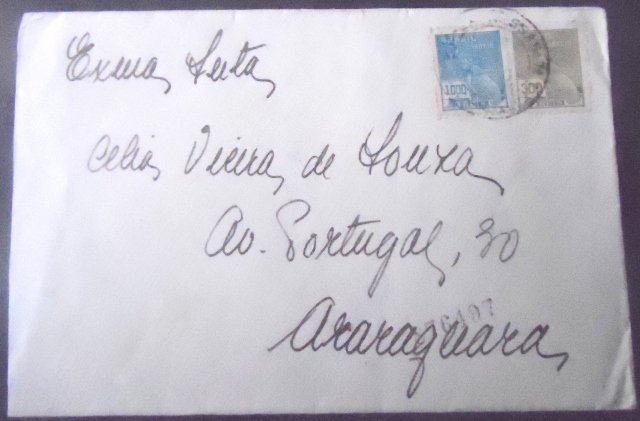 Exma Srta
1000
300
Celia Vieira de Souza
Av. Portugal, 30
Araraquara